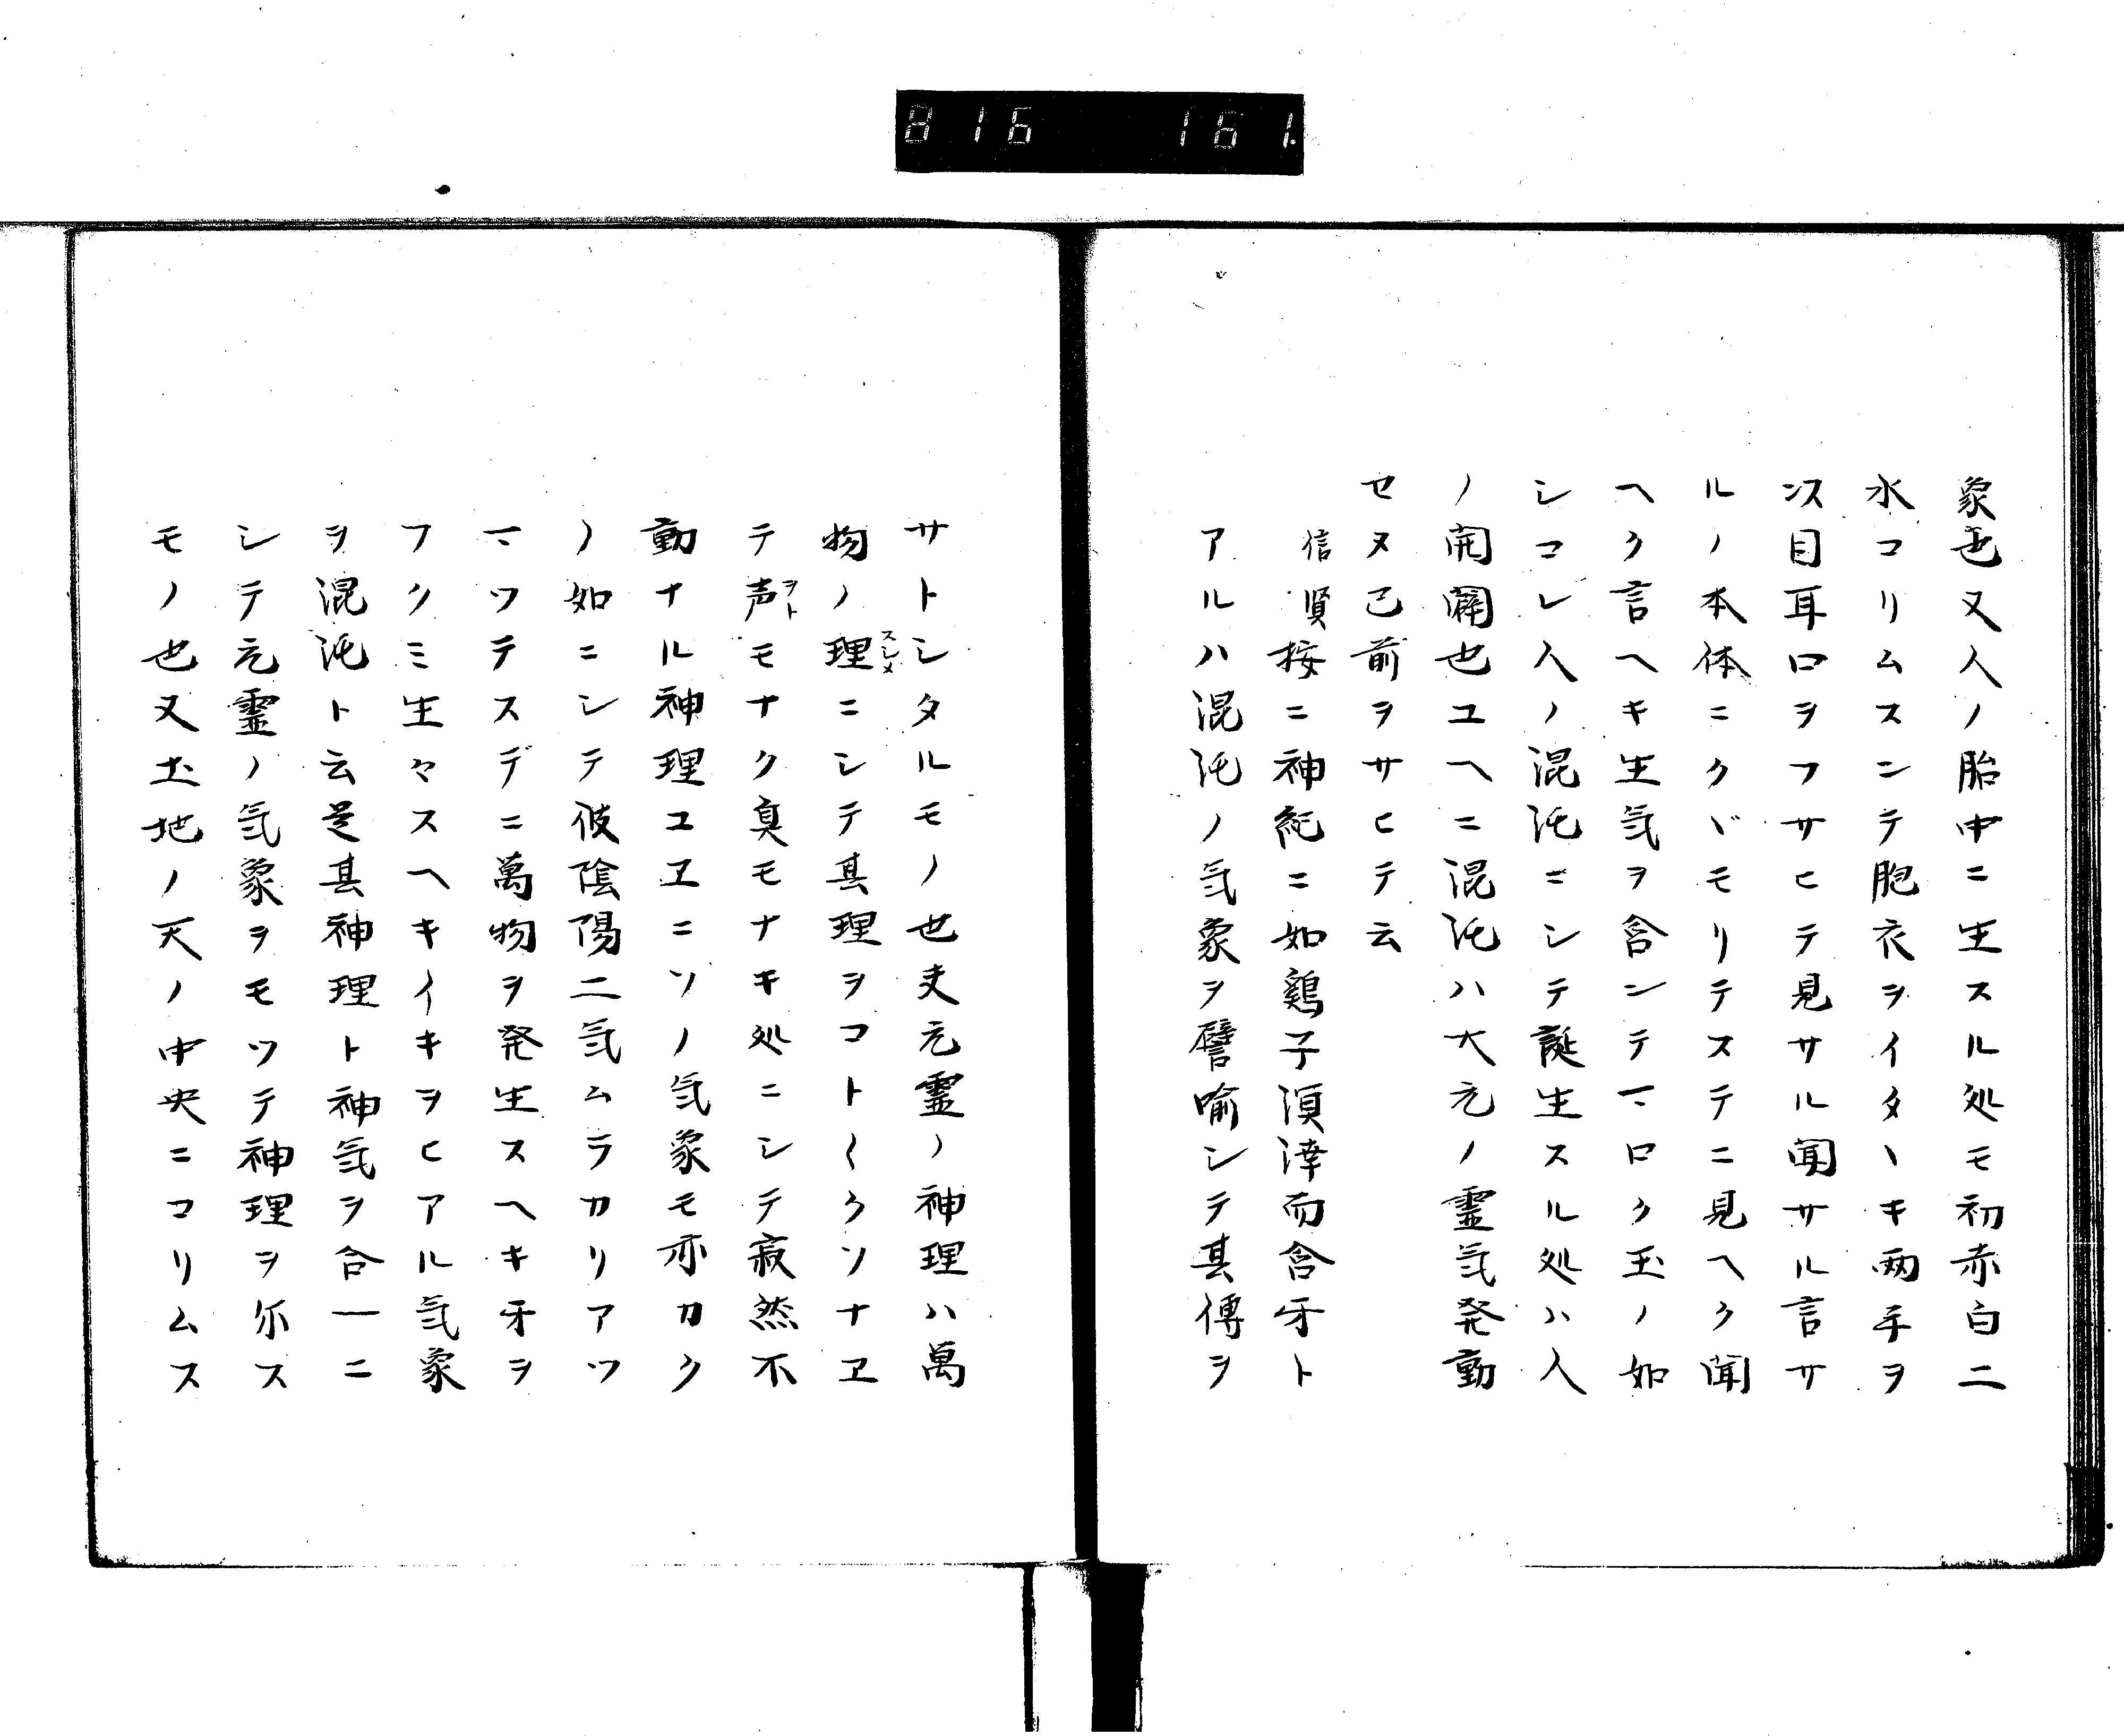 816 161.
象也又人ノ胎中ニ生スル処モ初赤白二
水コリムスンテ胞衣ヲイタヽキ両手ヲ
次目耳口ヲフサヒテ見サル聞サル言サ
ルノ本体ニクヾモリテステニ見ヘク聞
ヘク言ヘキ生気ヲ含ンテマロク玉ノ如
シコレ人ノ混沌ニシテ誕生スル処ハ人
ノ開闢也ユヘニ混沌ハ大元ノ霊気発動
セヌ已前ヲサヒテ云
信賢按ニ神紀ニ如鷄子溟涬而含牙ト
アルハ混沌ノ気象ヲ譬喩シテ其傳ヲ
サトシタルモノ也夫元霊ノ神理ハ萬
物ノ理スシメニシテ其理ヲコト〱クソナヱ
テ声ヲトモナク臭モナキ処ニシテ寂然不
動ナル神理ユヱニソノ気象モ亦カク
ノ如ニシテ彼陰陽二気ムラカリアツ
マツテスデニ萬物ヲ発生スヘキ牙ヲ
フクミ生々スヘキイキヲヒアル気象
ヲ混沌ト云是其神理ト神気ヲ合一ニ
シテ元霊ノ気象ヲモツテ神理ヲ尓ス
モノ也又土地ノ天ノ中央ニコリムス